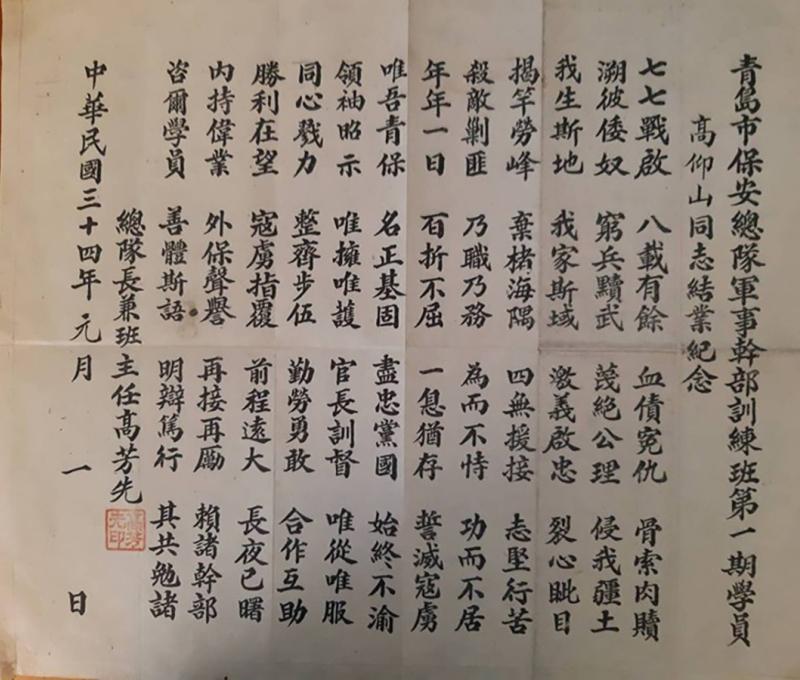 青島市保安總隊軍事幹部訓練班第一期學員
高仰山同志結業紀念
七七戰啟 八載有餘 血債寃仇 骨索肉贖
溯彼倭奴 窮兵黷武 蔑絕公理 侵我疆土
我生斯地 我家斯域 激義啟忠 裂心眦目
揭竿勞峰 棄楮海隅 四無援接 志堅行苦
殺敵剿匪 乃職乃務 為而不恃 功而不居
年年一日 百折不屈 一息猶存 誓滅寇虜
唯吾青保 名正基固 盡忠黨國 始終不渝
領袖昭示 唯擁唯護 官長訓督 唯從唯服
同心戮力 整齊步伍 勤勞勇敢 合作互助
勝利在望 寇虜指覆 前程遠大 長夜已曙
內持偉業 外保聲譽 再接再勵 賴諸幹部
咨爾學員 善體斯語 明辯篤行 其共勉諸
總隊長兼班主任高芳先
高芳先印
中華民國三十四年元月一日